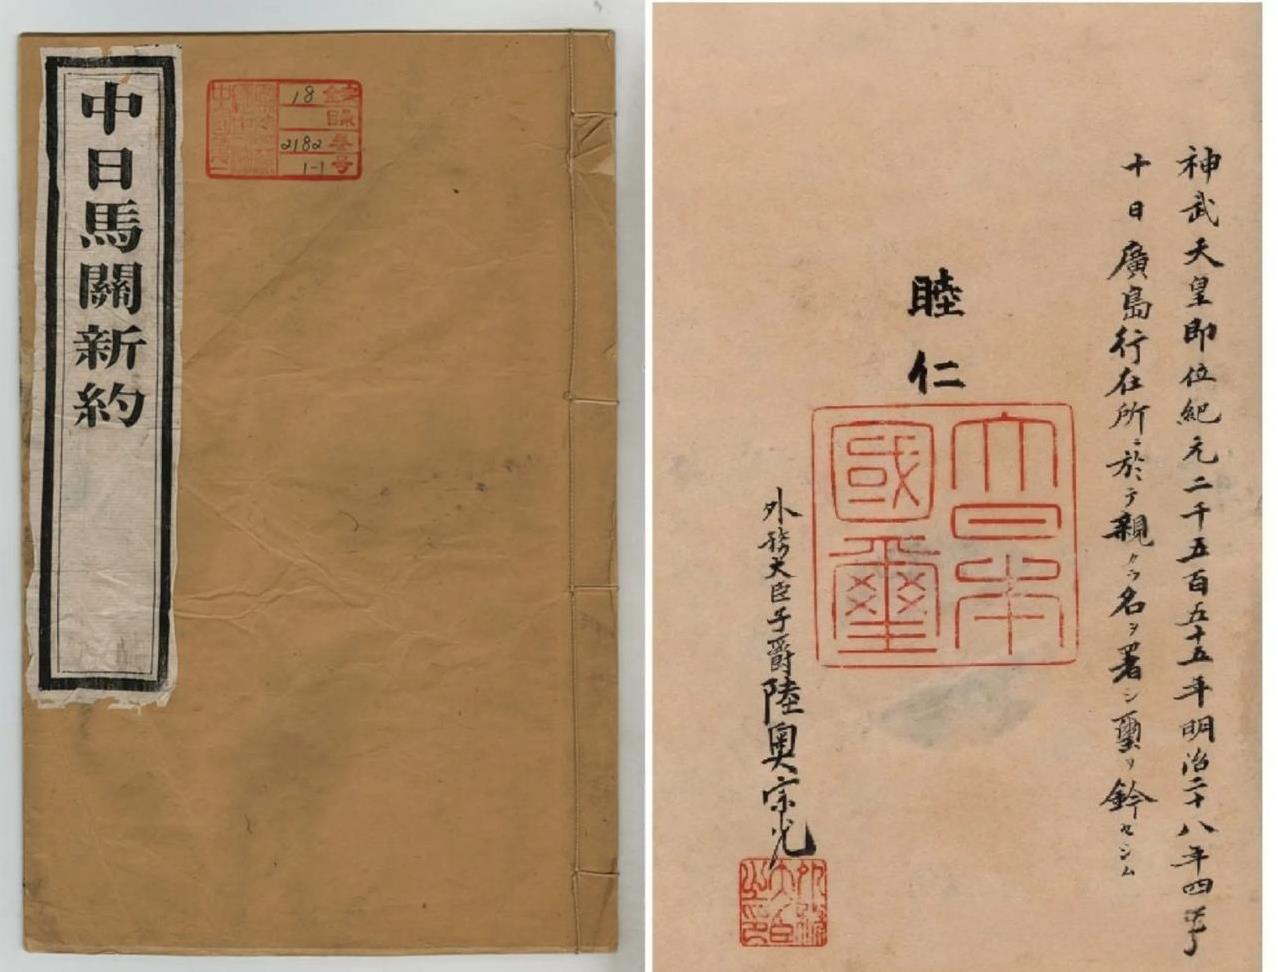 中日馬關新約
18
2182
1-1
神武天皇即位紀元二千五百五十五年明治二十八年四月二
十日廣島行在所ニ於テ親カラ名ヲ署シ璽ヲ鈐セシム
睦仁
大日本
國璽
外務大臣子爵陸奥宗光
外務
大臣
之印